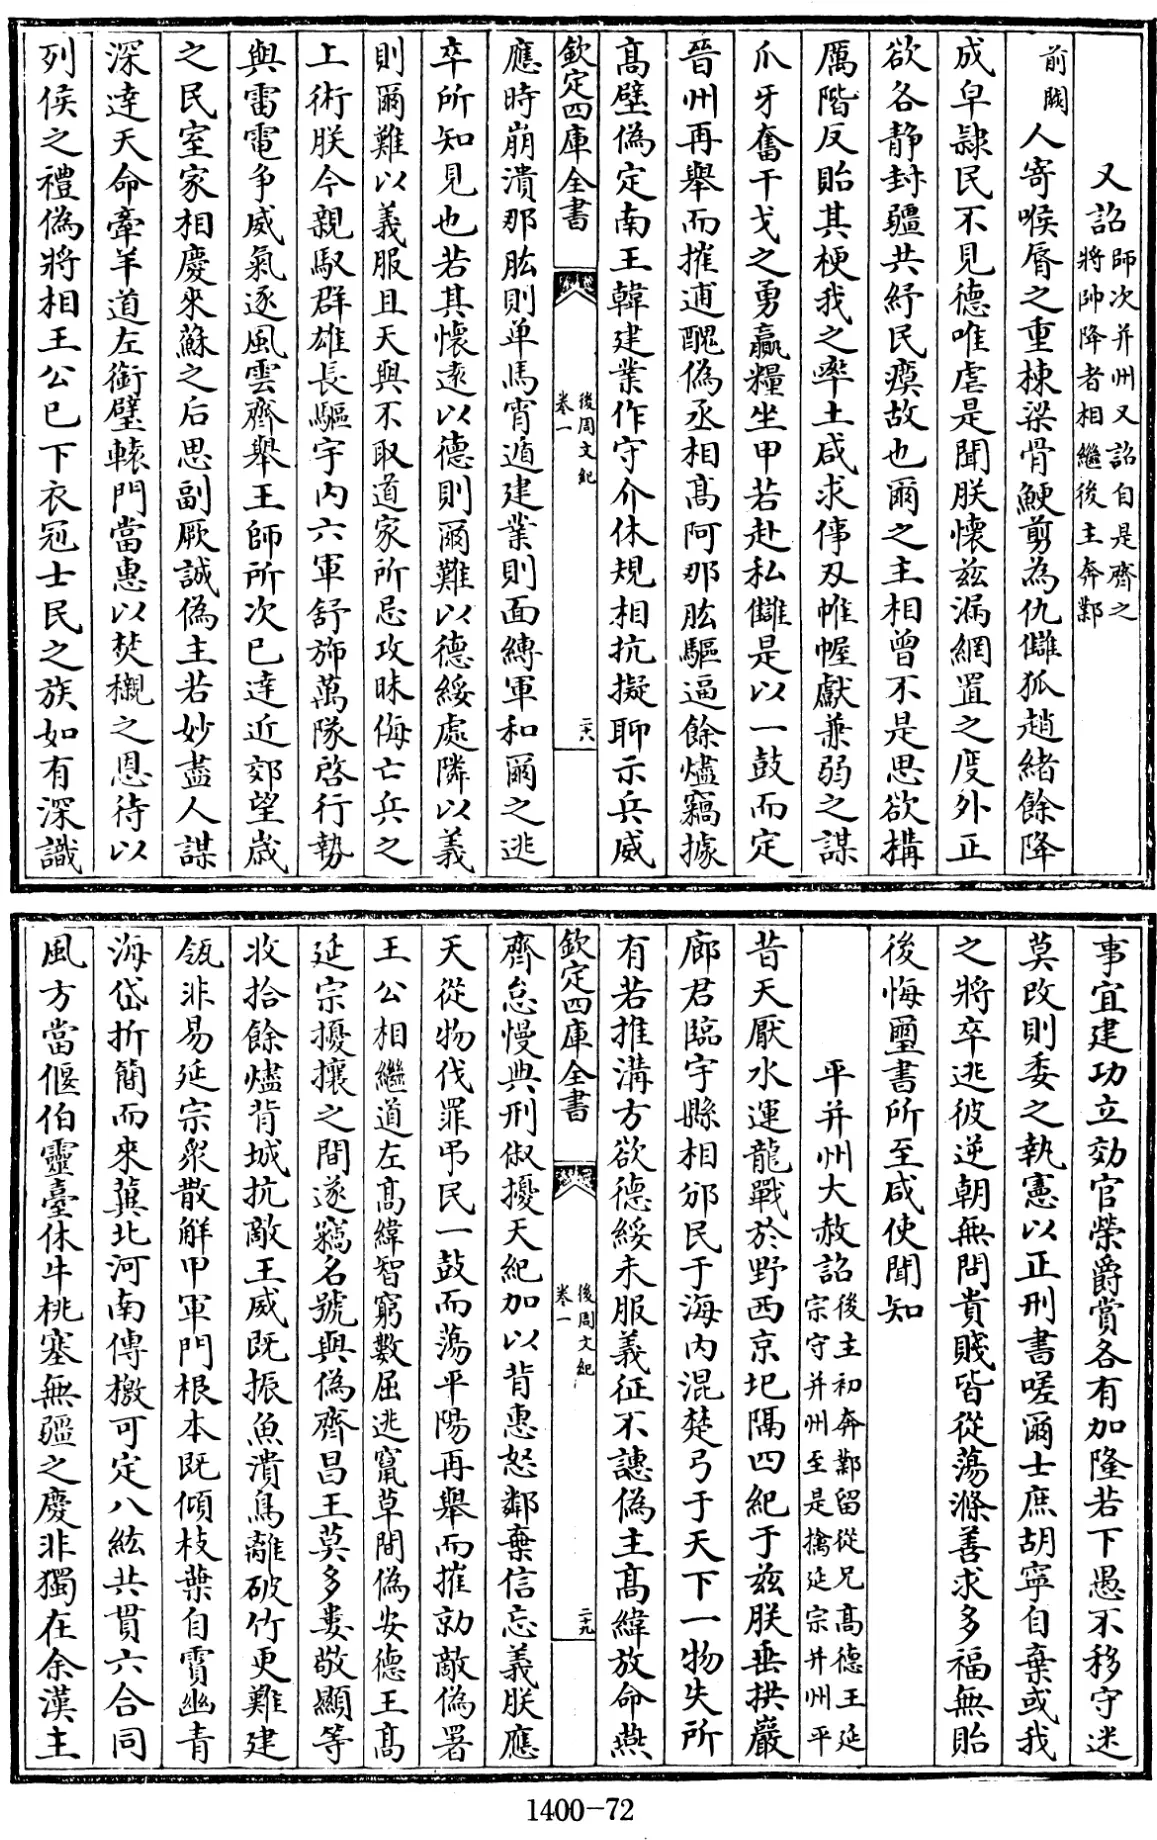 又詔師次并州又詔自是齊之
將帥降者相繼後主奔鄴
前闕人寄喉脣之重棟梁骨鯁剪為仇讎狐趙緒餘降
成皁隷民不見德唯虐是聞朕懷兹漏網置之度外正
欲各静封疆共紓民瘼故也爾之主相曾不是思欲搆
厲階反貽其梗我之率土咸求倳刄帷幄獻兼弱之謀
爪牙奮干戈之勇贏糧坐甲若赴私讎是以一鼓而定
晉州再舉而摧逋醜偽丞相髙阿那肱驅逼餘燼竊據
髙壁偽定南王韓建業作守介休規相抗擬聊示兵威
欽定四庫全書
後周文紀
卷一
二十八
應時崩潰那肱則单馬宵遁建業則面縛軍和爾之逃
卒所知見也若其懷逺以德則爾難以德綏處隣以義
則爾難以義服且天與不取道家所忌攻昧侮亡兵之
上術朕今親馭群雄長驅宇内六軍舒斾萬隊啓行勢
與雷電争威氣逐風雲齊舉王師所次已逹近郊望嵗
之民室家相慶來蘇之后思副厥誠偽主若妙盡人謀
深逹天命牽羊道左銜璧轅門當惠以焚櫬之恩待以
列侯之禮偽將相王公已下衣冠士民之族如有深識
事宜建功立効官榮爵賞各有加隆若下愚不移守迷
莫改則委之執憲以正刑書嗟爾士庶胡寜自棄或我
之將卒逃彼逆朝無問貴賤皆從蕩滌善求多福無貽
後悔璽書所至咸使聞知
平并州大赦詔後主初奔鄴留從兄高德王延
宗守并州至是擒延宗并州平
昔天厭水運龍戰於野西京圮隔四紀于兹朕垂拱巖
廊君臨宇縣相邠民于海内混楚弓于天下一物失所
有若推溝方欲德綏未服義征不譓偽主髙緯放命燕
欽定四庫全書
後周文紀
卷一
二十九
齊怠慢典刑俶擾天紀加以背惠怒鄰棄信忘義朕應
天從物伐罪弔民一鼓而蕩平陽再舉而摧勍敵偽署
王公相繼道左髙緯智窮數屈逃竄草間偽安德王髙
延宗擾攘之間遂竊名號與偽齊昌王莫多婁敬顯等
收拾餘燼背城抗敵王威既振魚潰鳥離破竹更難建
瓴非易延宗衆散解甲軍門根本既傾枝葉自霣幽青
海岱折簡而來冀北河南傳檄可定八紘共貫六合同
風方當偃伯靈臺休牛桃塞無疆之慶非獨在余漢主
1400-72